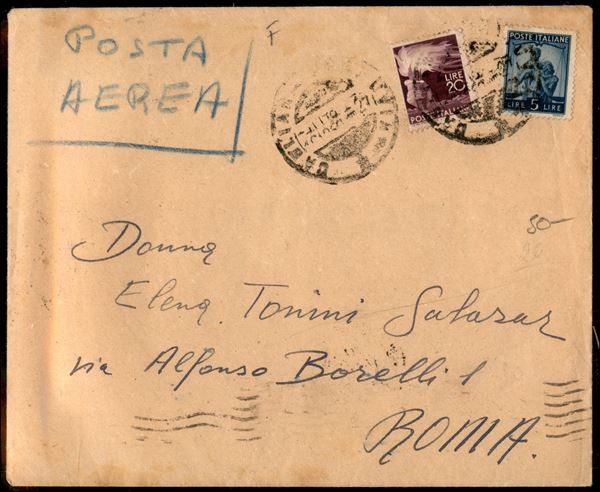 POSTA
AEREA
F
CAGLIARI
LIRE
20
POSTE ITALIANE
POSTE ITALIANE
LIRE 5 LIRE
50-
Donna
Elena Tonini Salazar
via Alfonso Borelli 1
ROMA.